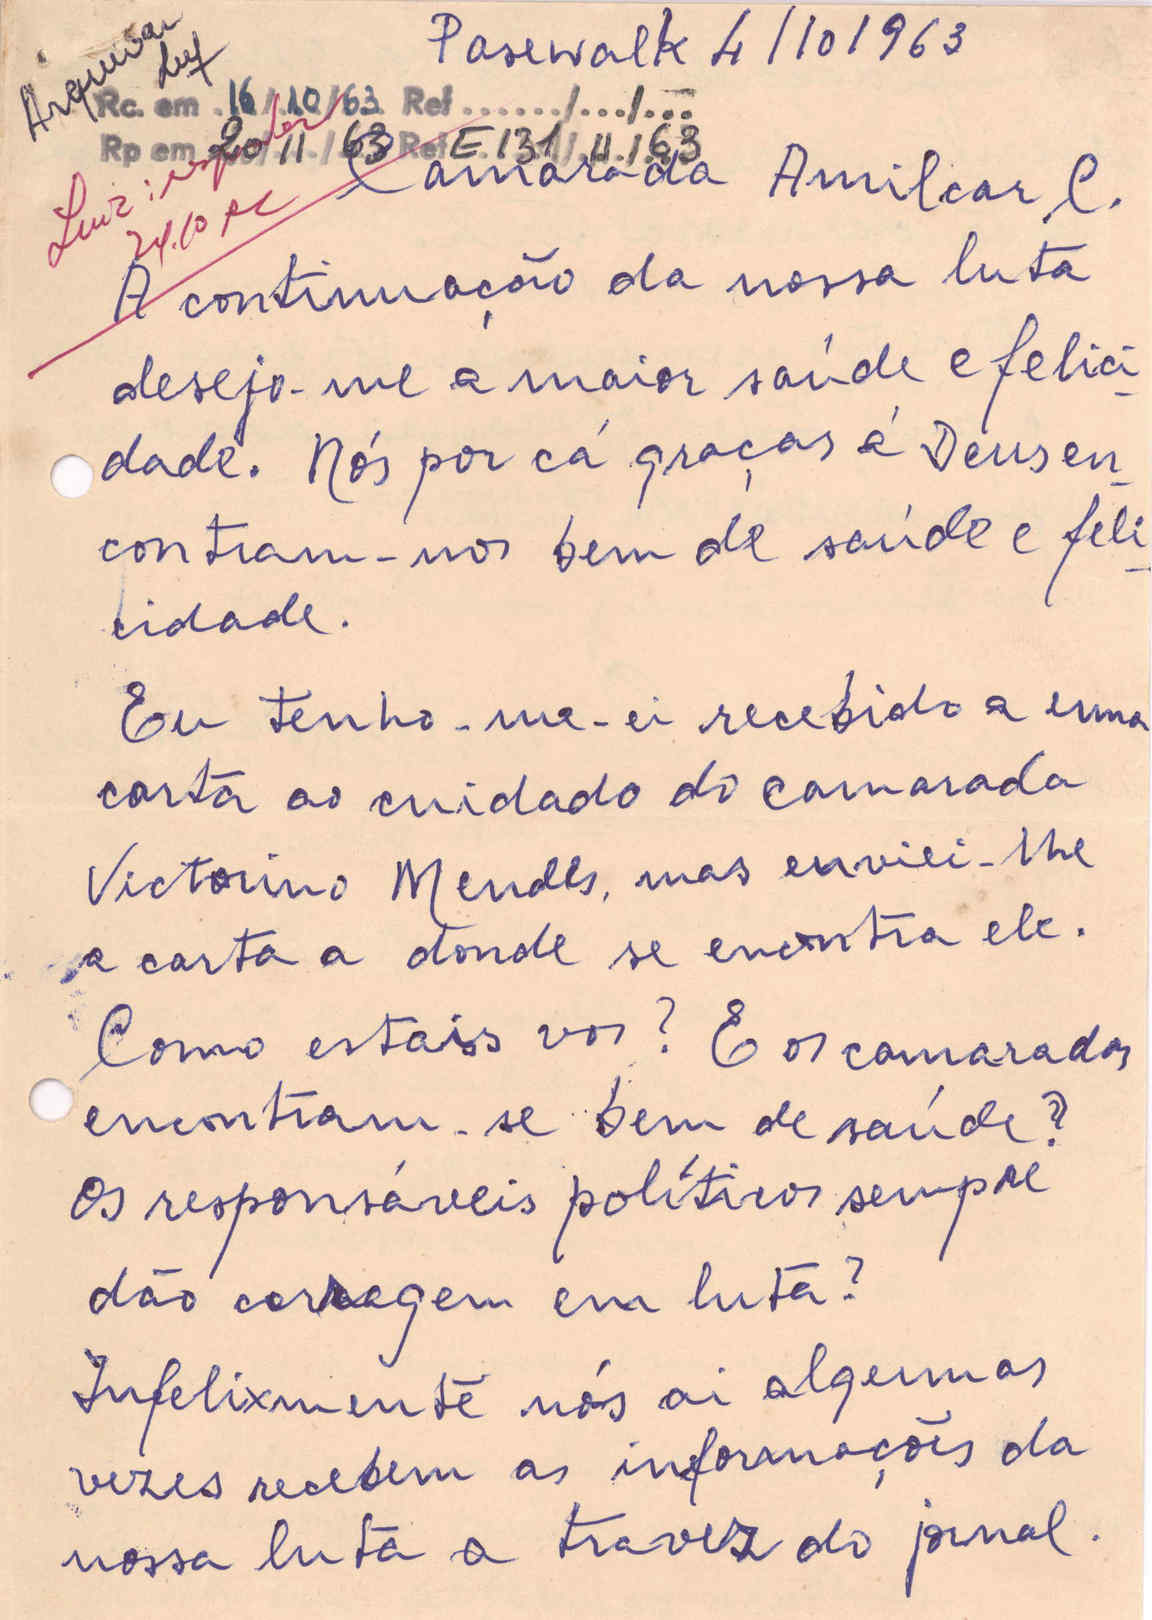 Arquivar
Pasewalk 4/10/1963
Rc. em 16/10/63 Ref ....../.../...
Rp em 20/11/63 Ref E 131/11/63
Luiz: responder
24.10
Camarada Amilcar C.
A continuação da nossa luta
desejo-me a maior saúde e felici_
dade. Nós por cá graças á Deus en_
contram-nos bem de saúde e feli_
cidade.
Eu tenho-me-ei recebido a uma
carta ao cuidado do camarada
Victorino Mendes, mas enviei-lhe
a carta a donde se encontra ele.
Como estais vos? E os camaradas
encontram-se bem de saúde?
Os responsáveis políticos sempre
dão corragem em luta?
Infelixmente nós ai algumas
vezes recebem as informações da
nossa luta a travez do jornal.